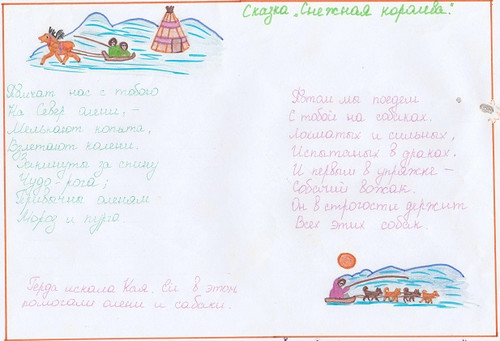 Сказка „Снежная королева."
Мчат нас с тобою
На Север олени, –
Мелькают копыта,
Взлетают колени.
Закинуты за спину
Чудо-рога;
Привычны оленям
Мороз и пурга
Герда искала Кая. Ей в этом
помогали олени и собаки.
А там мы поедем
С тобой на собаках.
Лохматых и сильных,
Испытаных в драках.
И первым в упряжке –
Собачий вожак.
Он в строгости держит
Всех этих собак